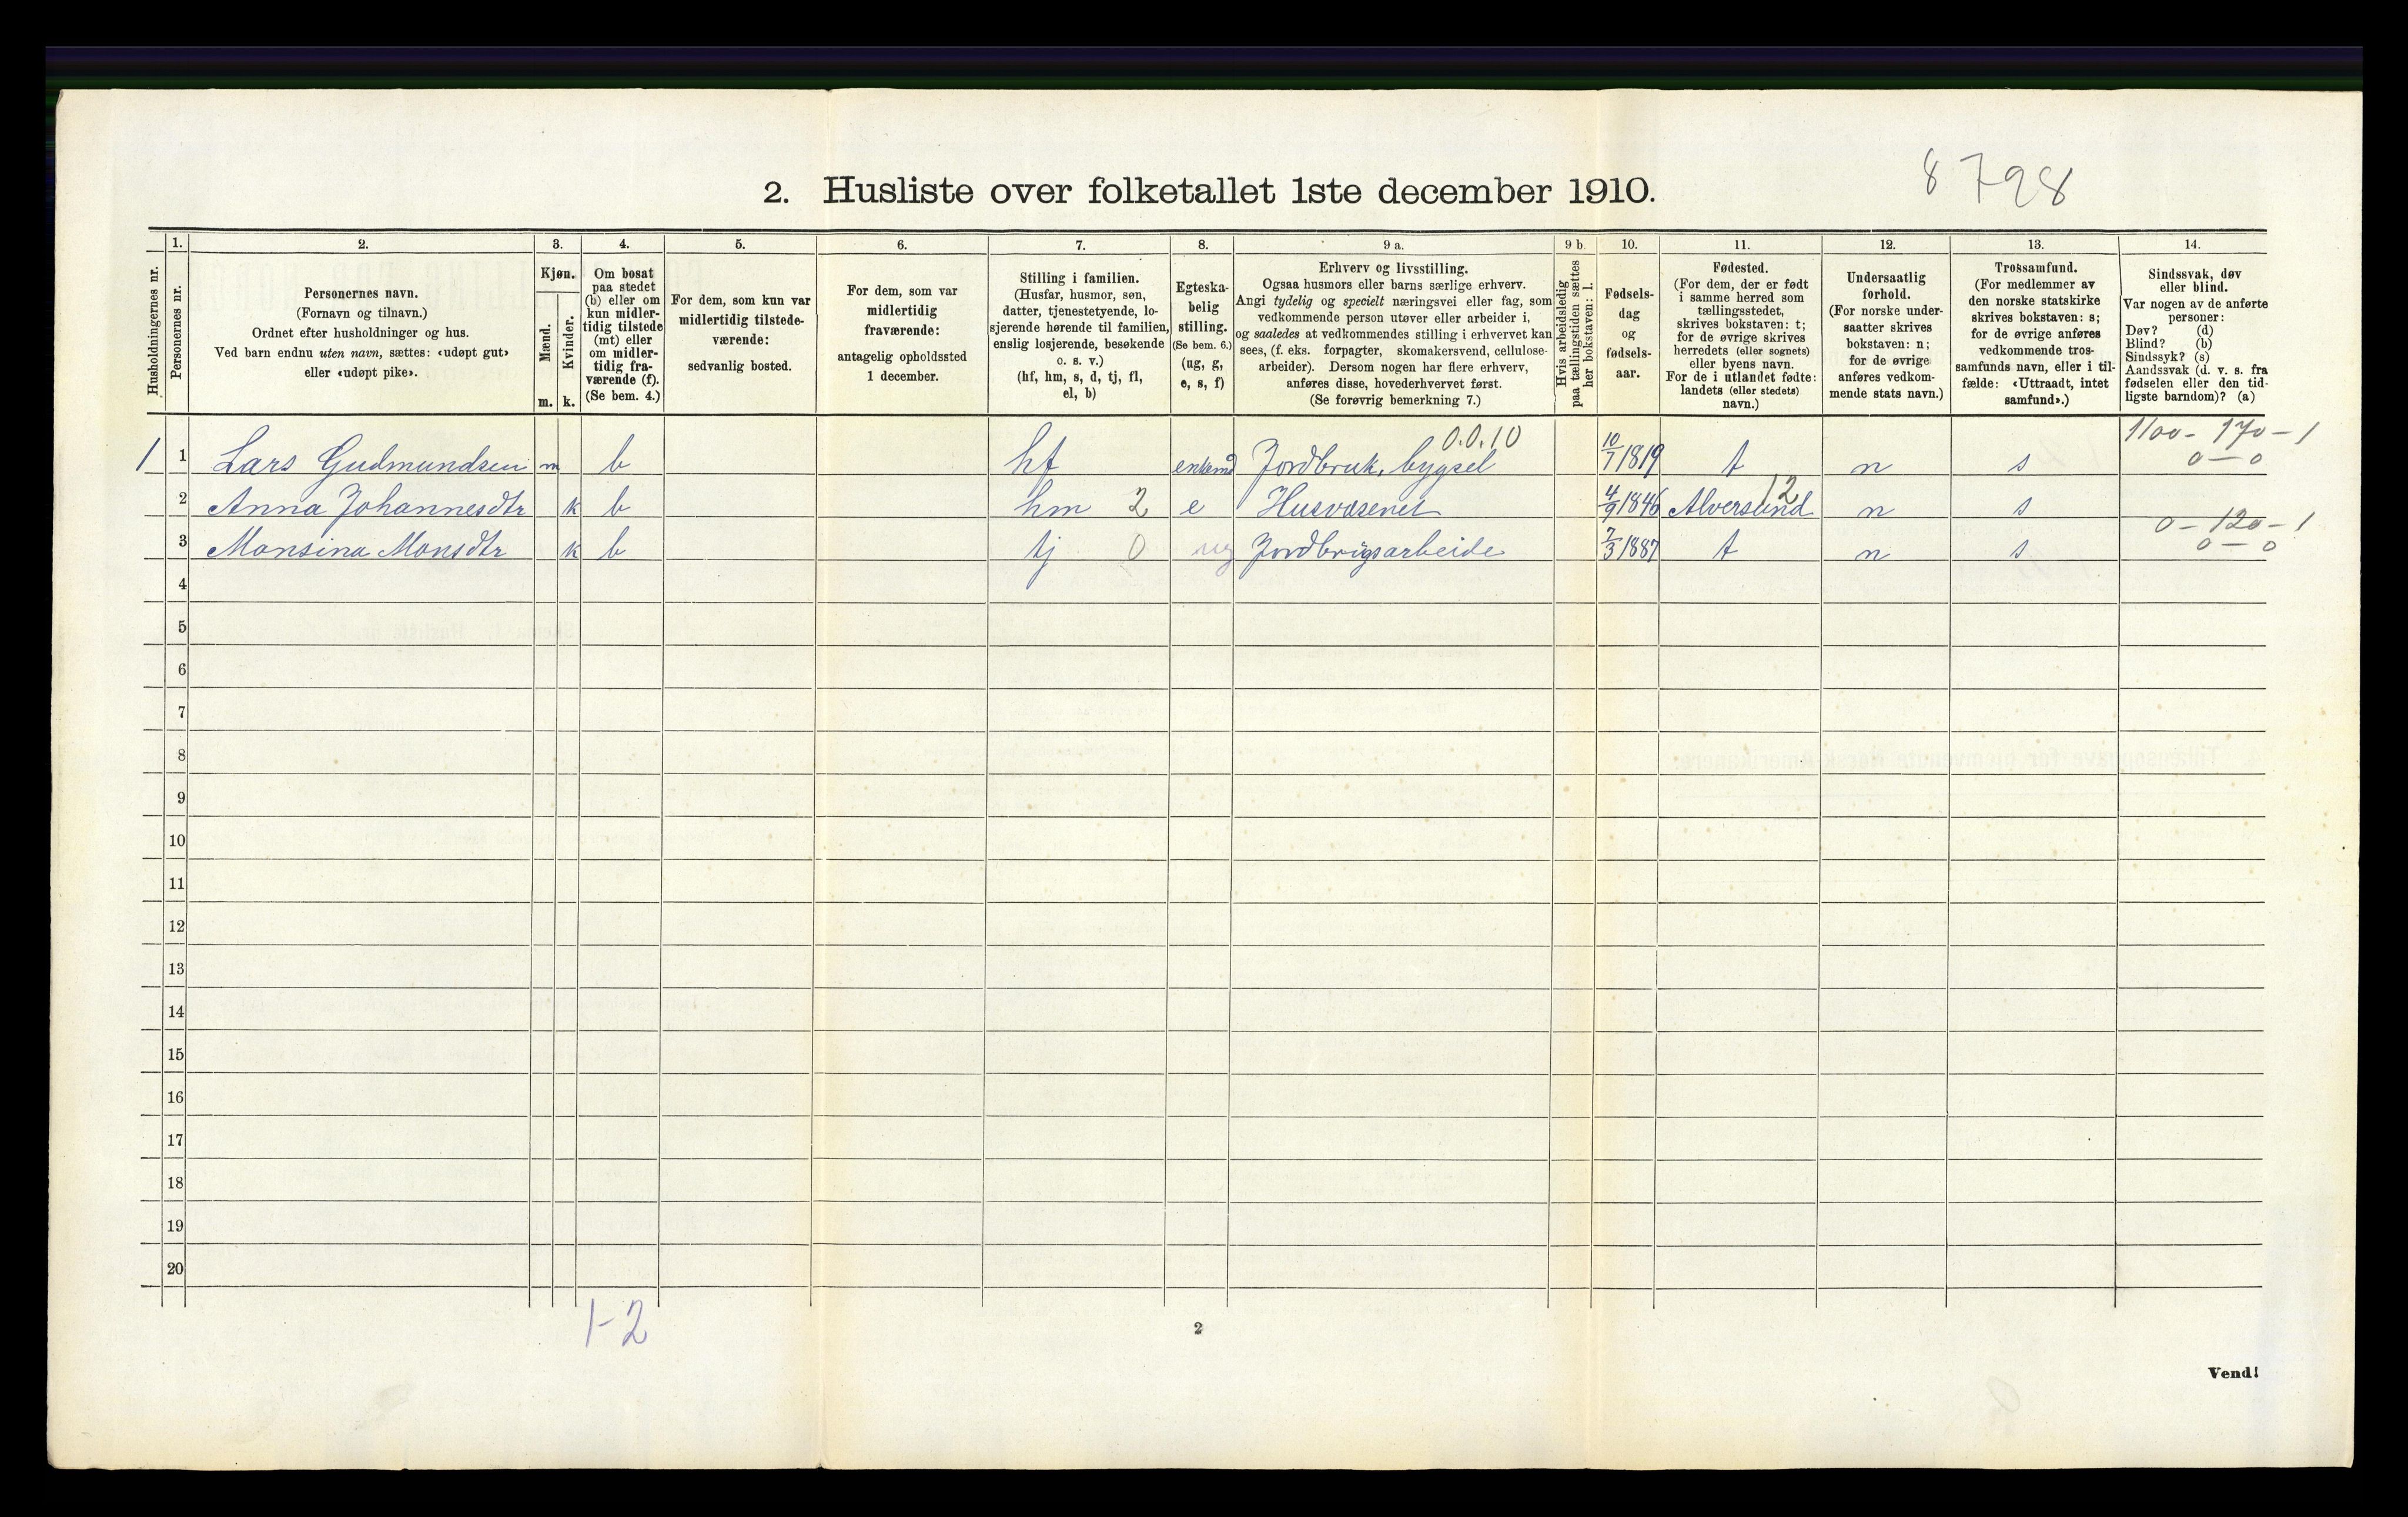 8 798
2. Husliste over folketallet 1ste december 1910.
Husholdningernes nr.
1.
Personernes nr.
2.
Personernes navn.
(Fornavn og tilnavn.)
Ordnet efter husholdninger og hus.
Ved barn endnu uten navn, sættes: «udøpt gut»
eller «udøpt pike».
3.
Kjøn.
Mænd.
Kvinder.
m. k.
4.
Om bosat
paa stedet
(b) eller om
kun midler-
tidig tilstede
(mt) eller
om midler-
tidig fra-
værende (f).
(Se bem. 4.)
5.
For dem, som kun var
midlertidig tilstede-
værende:
sedvanlig bosted.
6.
For dem, som var
midlertidig
fraværende:
antagelig opholdssted
1 december.
7.
Stilling i familien.
(Husfar, husmor, søn,
datter, tjenestetyende, lo-
sjerende hørende til familien,
enslig losjerende, besøkende
o. s. v.)
(hf, hm, s, d, tj, fl,
el, b)
8.
Egteska-
belig
stilling.
(Se bem. 6.)
(ug, g,
e, s, f)
9 a.
Erhverv og livsstilling.
Ogsaa husmors eller barns særlige erhverv.
Angi tydelig og specielt næringsvei eller fag, som
vedkommende person utøver eller arbeider i,
og saaledes at vedkommendes stilling i erhvervet kan
sees, (f. eks. forpagter, skomakersvend, cellulose-
arbeider). Dersom nogen har flere erhverv,
anføres disse, hovederhvervet først.
(Se forøvrig bemerkning 7.)
9 b.
Hvis arbeidsledig
paa tællingstiden sættes
her bokstaven: l.
10.
Fødsels-
dag
og
fødsels-
aar.
11.
Fødested.
(For dem, der er født
i samme herred som
tællingsstedet,
skrives bokstaven: t;
for de øvrige skrives
herredets (eller sognets)
eller byens navn.
For de i utlandet fødte:
landets (eller stedets)
navn.)
12.
Undersaatlig
forhold.
(For norske under-
saatter skrives
bokstaven: n;
for de øvrige
anføres vedkom-
mende stats navn.)
13.
Trossamfund.
(For medlemmer av
den norske statskirke
skrives bokstaven: s;
for de øvrige anføres
vedkommende tros-
samfunds navn, eller i til-
fælde: «Uttraadt, intet
samfund».)
14.
Sindssvak, døv
eller blind.
Var nogen av de anførte
personer:
Døv? (d)
Blind? (b)
Sindssyk? (s)
Aandssvak (d. v. s. fra
fødselen eller den tid-
ligste barndom)? (a)
0.0.10 1100 - 170 - 1
1 1 Lars Gudmundsen m b hf enkemd Jordbruk, bygsel 10/7 1819 t n s 0 - 0
2 Anna Johannesdtr k b hm 2 e Husvæsenet 4/9 1846 Alversund 12 n s
0 - 120 - 1
3 Monsina Monsdtr k b tj 0 ug Jordbrugsarbeide 7/3 1887 t n s 0 - 0
4
5
6
7
8
9
10
11
12
13
14
15
16
17
18
19
20
1-2
2
Vend!